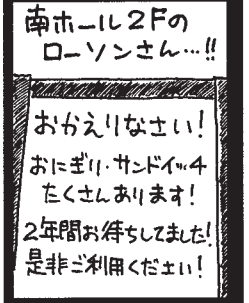 南ホール2Fの
ローソンさん…!!
おかえりなさい!
おにぎり・サンドイッチ
たくさんあります!
2年間お待ちしてました!
是非ご利用ください!